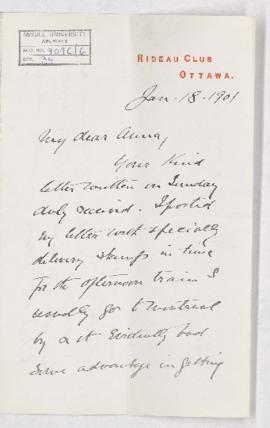 McGILL UNIVERSITY
ARCHIVES
ACC. NO. 909C/6
REF. 34
RIDEAU CLUB
OTTAWA.
Jan. 18. 1901
My dear Anna,
Your Kind
letter written on Sunday
duly received. I posted
my letter with specially
delivery stamps in time
for the afternoon train I
usually go to Montreal
by & it evidently had
some advantage in getting